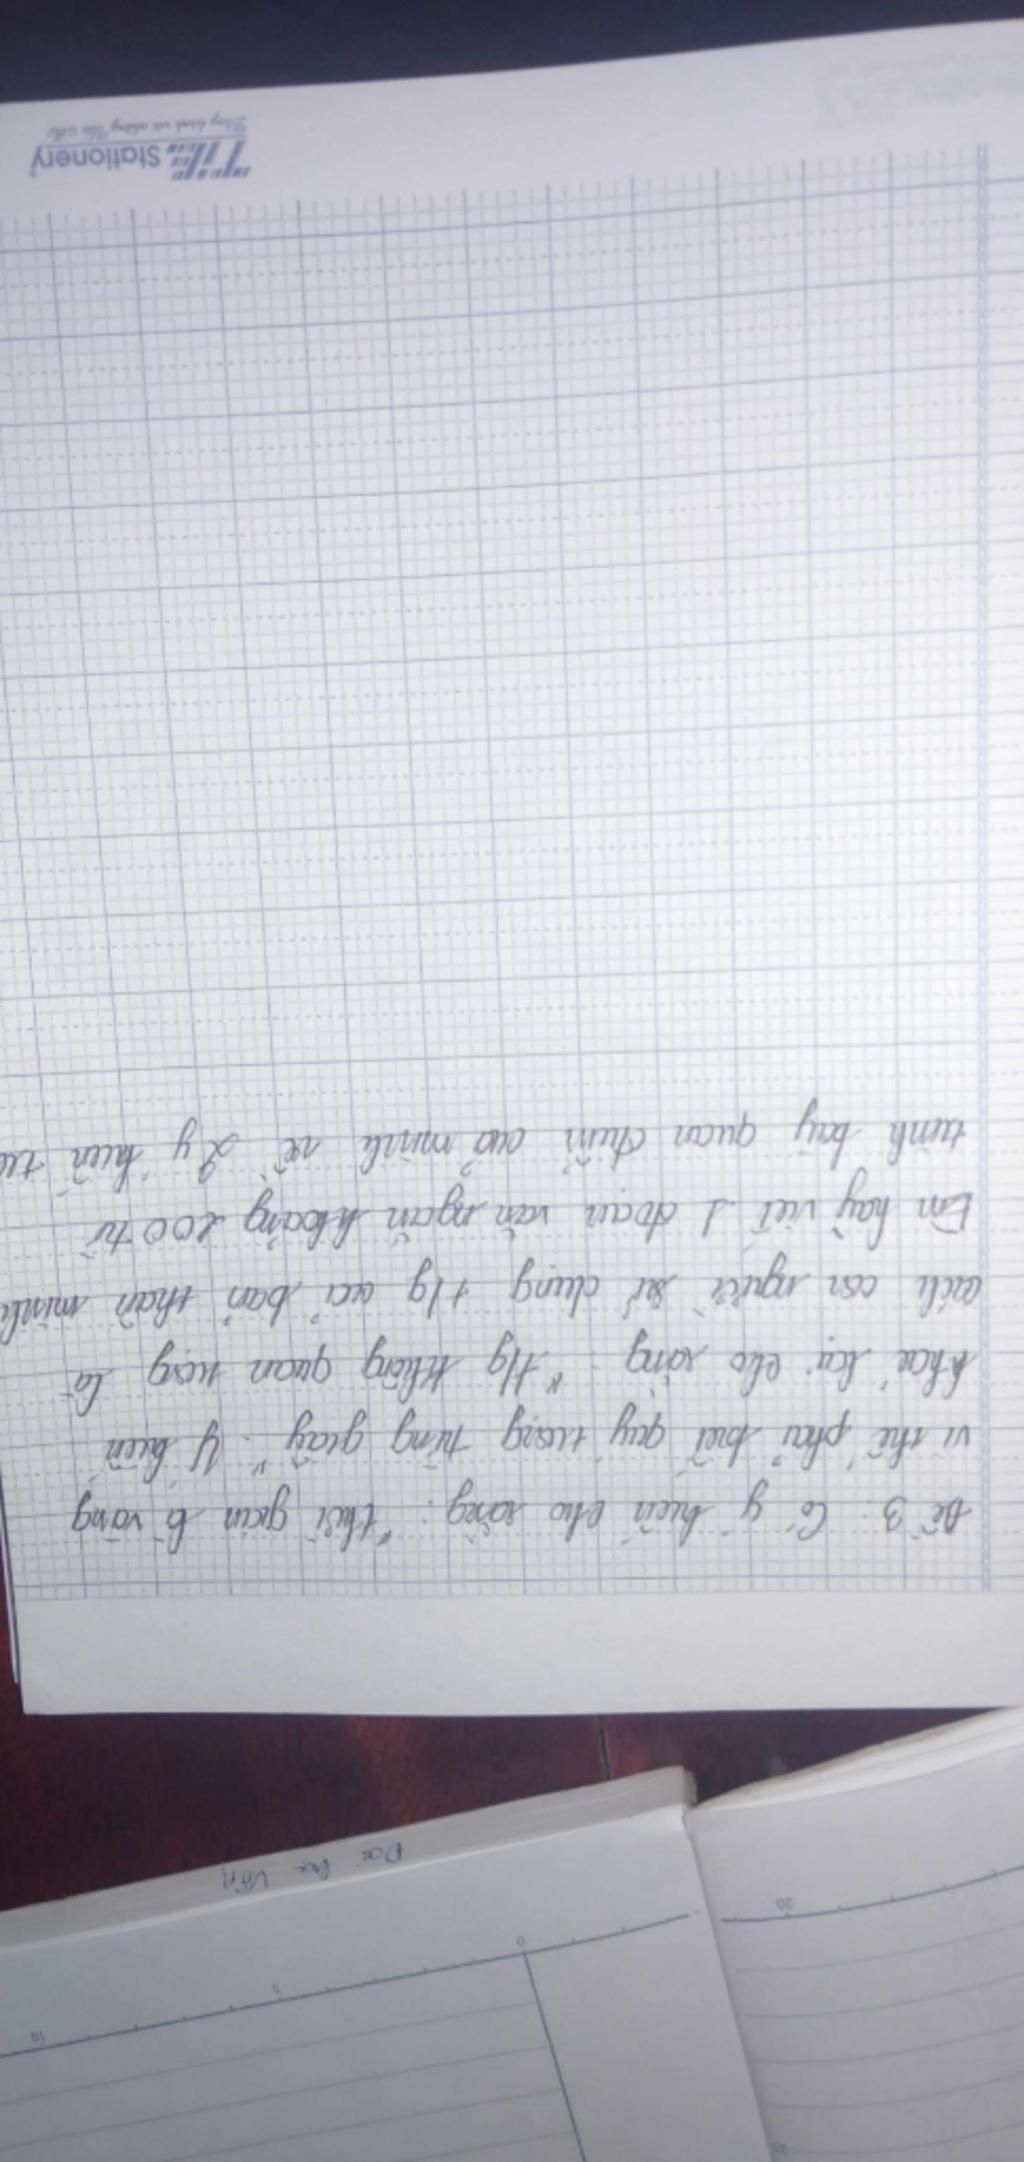 Đề 3: Có ý kiến cho rằng: "thời gian là vàng
vì thế phải biết quý trọng từng giây". Ý kiến
khác lại cho rằng: "t/g không quan trọng là
cách con người sử dụng t/g của bản thân mình
Em hãy viết 1 đoạn văn ngắn khoảng 200 từ
trình bày quan điểm của mình về 2 ý kiến
TIE Stationery
Đồng hành với những Ước Mơ
Đại học Văn
0
5
10
20
25